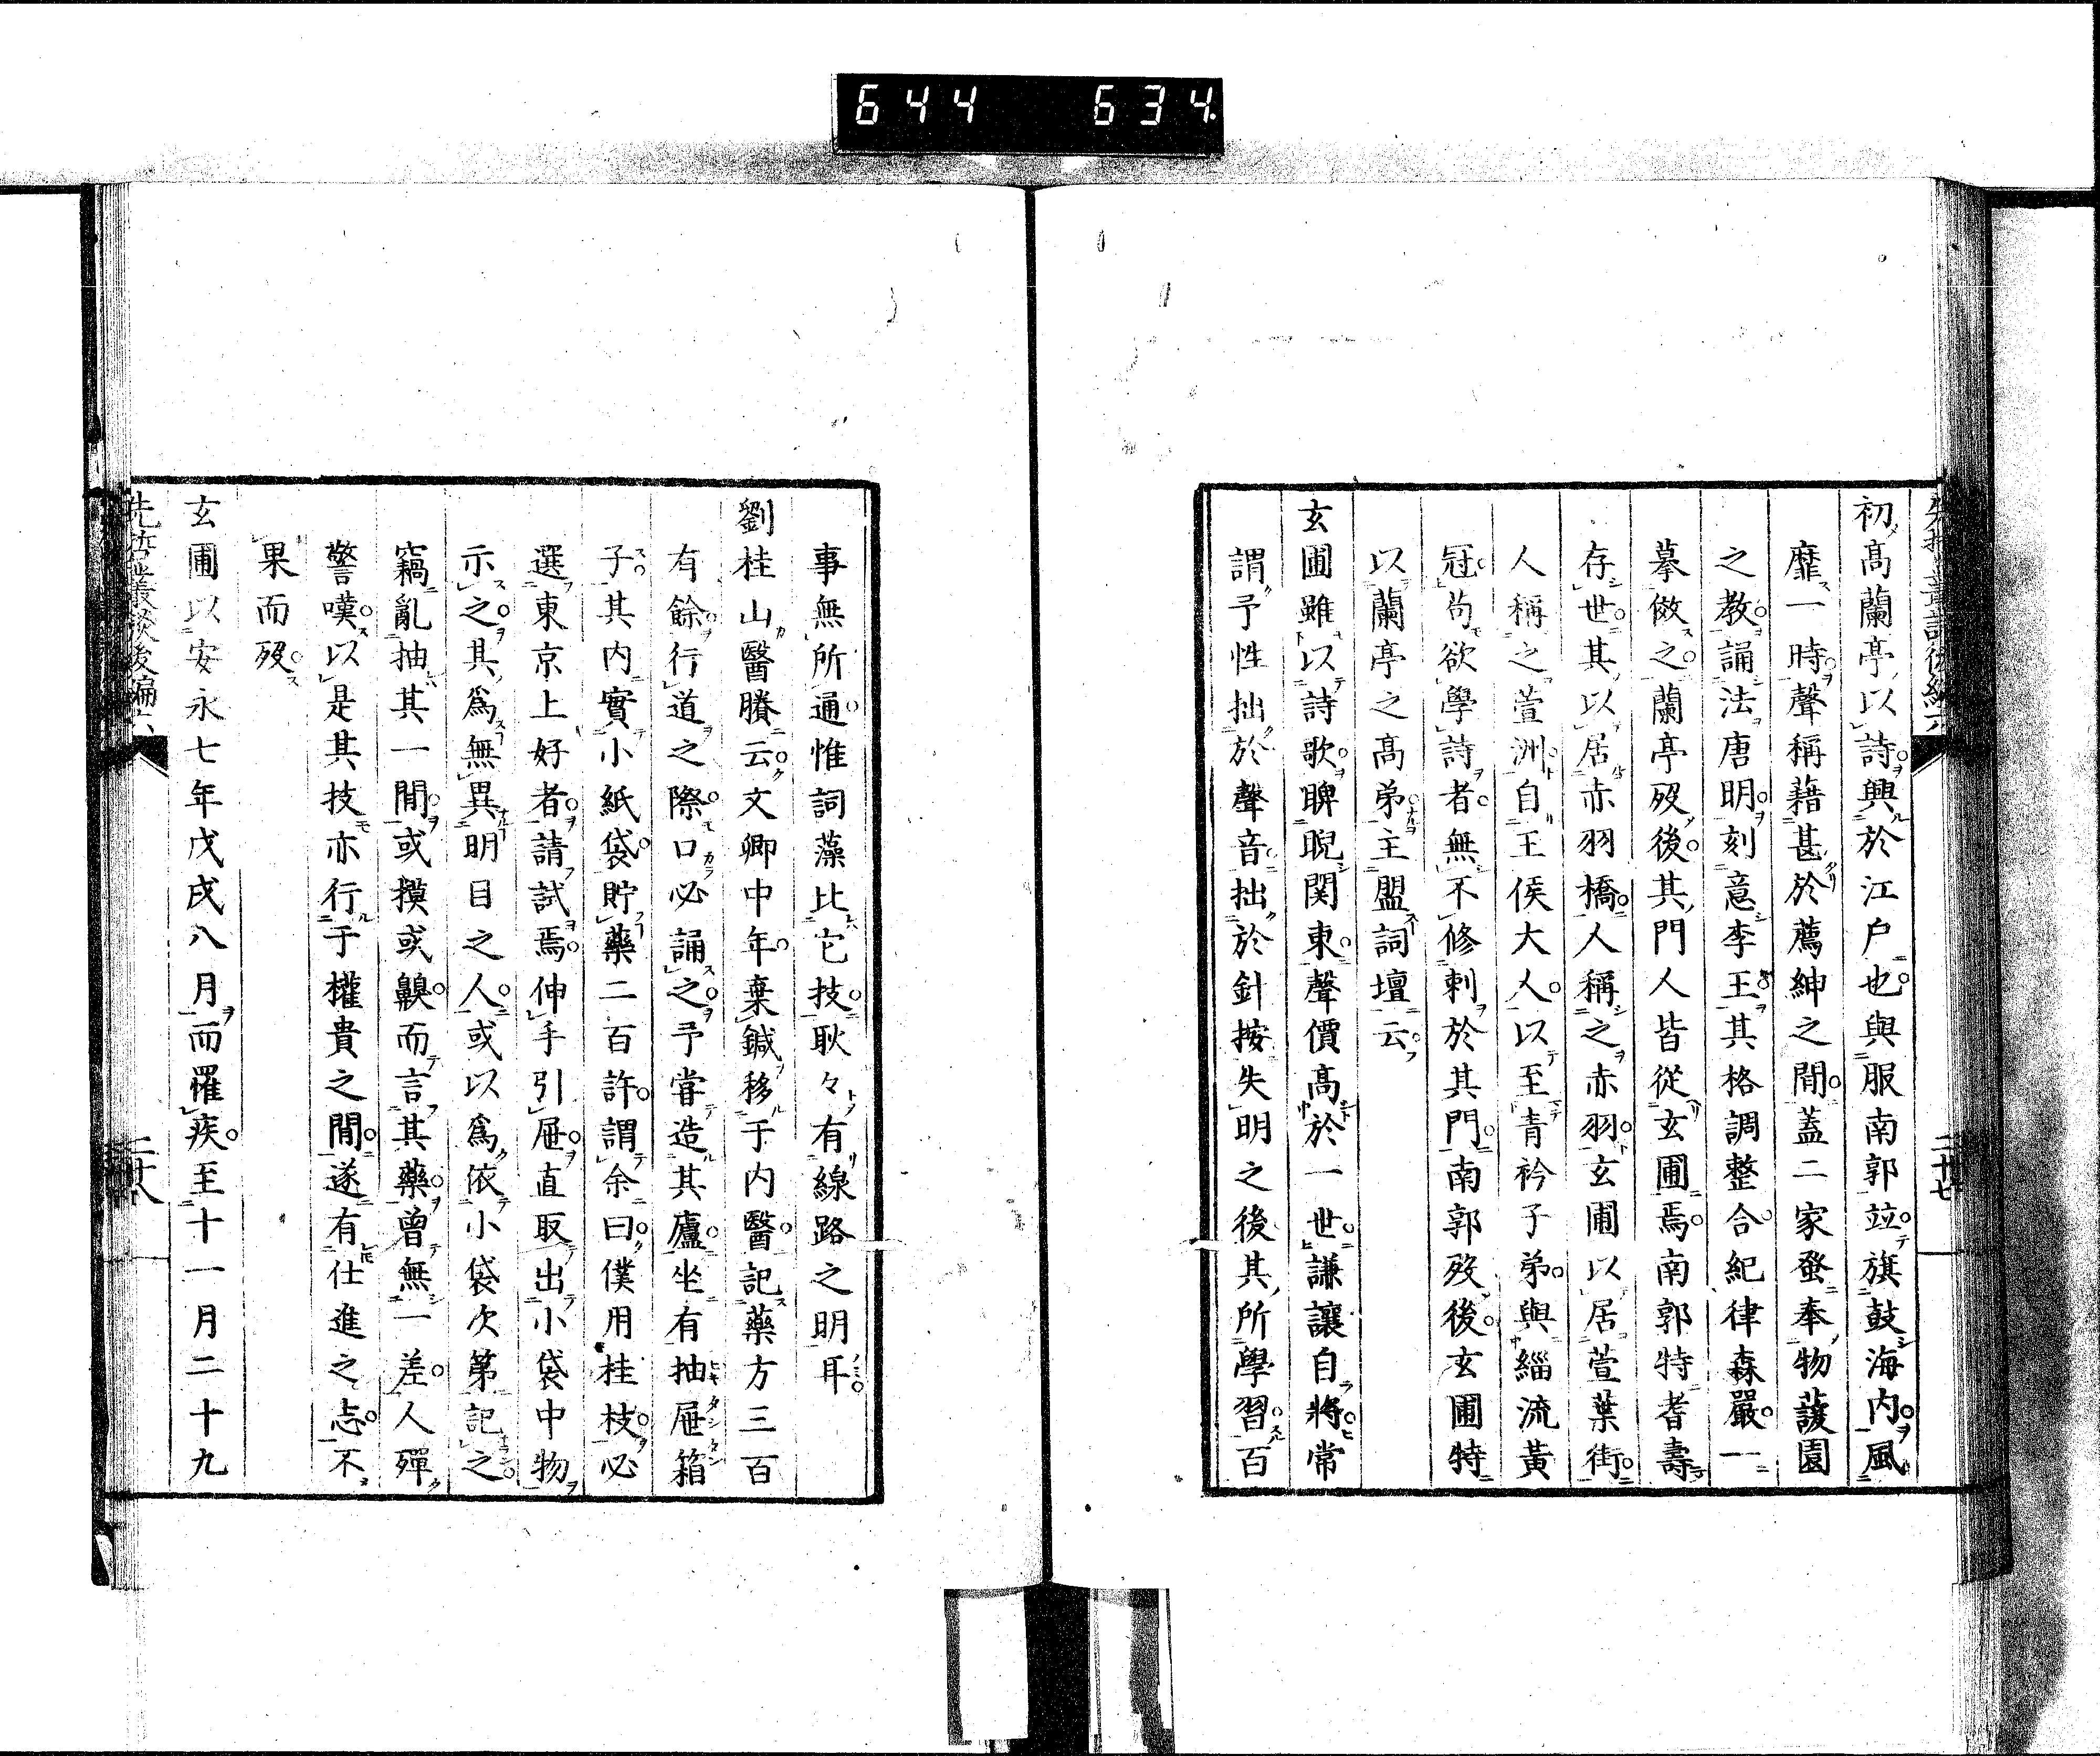 644 634.
先哲叢談後編六
二十七
初高蘭亭以詩興於江戶也與服南郭竝旗鼓海内風
靡一時聲稱藉甚於薦紳之間蓋二家發奉物蘐園
之教誦法唐明刻意李王其格調整合紀律森嚴一
摹倣之蘭亭歿後其門人皆從玄圃焉南郭特耆壽
存世其以居赤羽橋人稱之赤羽玄圃以居萱葉街
人稱之萱洲自王侯大人以至青衿子弟與緇流黃
冠苟欲學詩者無不修刺於其門南郭歿後玄圃特
以蘭亭之高弟主盟詞壇云
玄圃雖以詩歌睥睨関東聲價高於一世謙讓自將常
謂予性拙於聲音拙於針按失明之後其所學習百
事無所通惟詞藻比它技耿々有線路之明耳
劉桂山醫賸云文卿中年棄鍼移于内醫記藥方三百
有餘行道之際口必誦之予甞造其廬坐有抽屜箱
子其内實小紙袋貯藥二百許謂余曰僕用桂枝必
選東京上好者請試焉伸手引屜直取出小袋中物
示之其爲無異明目之人或以爲依小袋次第記之
竊亂抽其一間或摸或齅而言其藥曾無一差人殫
警嘆以是其技亦行于權貴之間遂有仕進之志不
果而歿
玄圃以安永七年戊戌八月而罹疾至十一月二十九
先哲叢談後編六
二十八